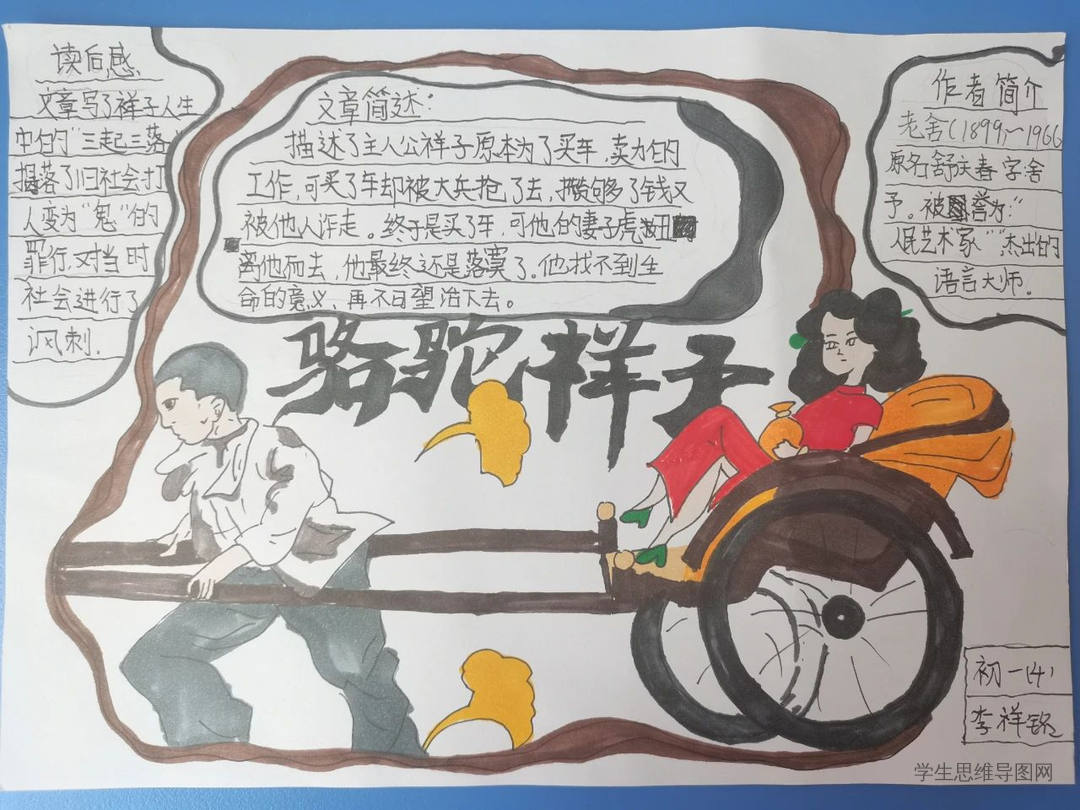 读后感
文章写了祥子人生
中的"三起三落"
揭落了旧社会打
人变为"鬼"的
罪行,对当时
社会进行了
讽刺.
文章简述:
描述了主人公祥子原本为了买车,卖力的
工作,可买了车却被大兵抢了去,攒够了钱又
被他人诈走。终于是买了车,可他的妻子虎妞
离他而去,他最终还是落寞了。他找不到生
命的意义,再不日望活下去。
作者简介
老舍(1899~1966
原名舒庆春字舍
予。被誉为:"
人民艺术家""杰出的
语言大师.
骆驼祥子
初一(4)
李祥铭
学生思维导图网